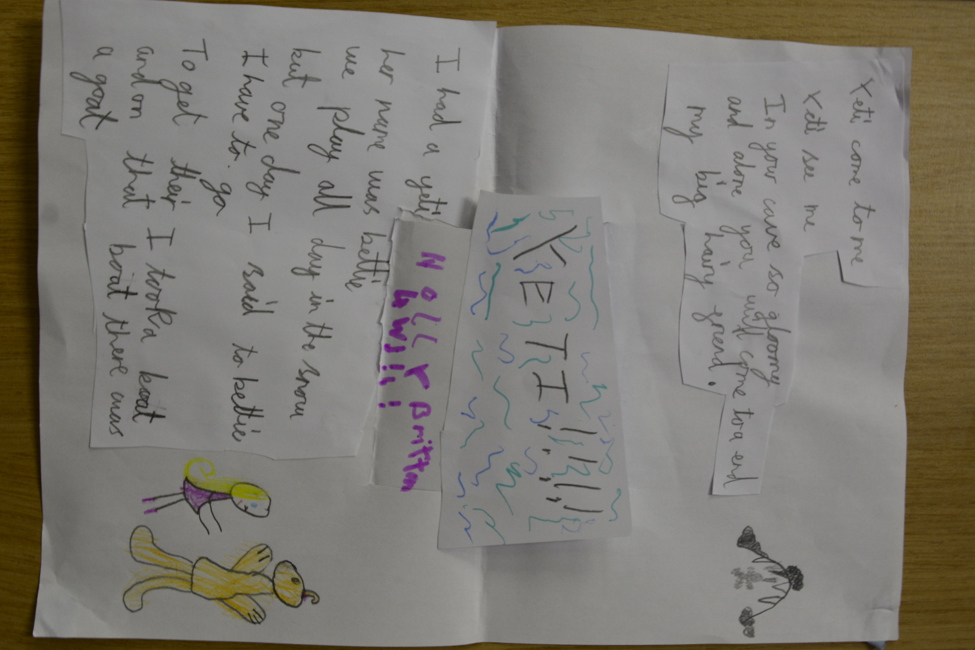 Yeti come to me
Yeti see me
In your cave so gloomy
and alone you will come to a end
my big hairy
YETI!!!!
HoLLY Britton
I had a yeti
her name was bettie
we play all day in the snow
but one day I said to bettie
I have to go
To get their I took a boat
and on that boat there was
a goat